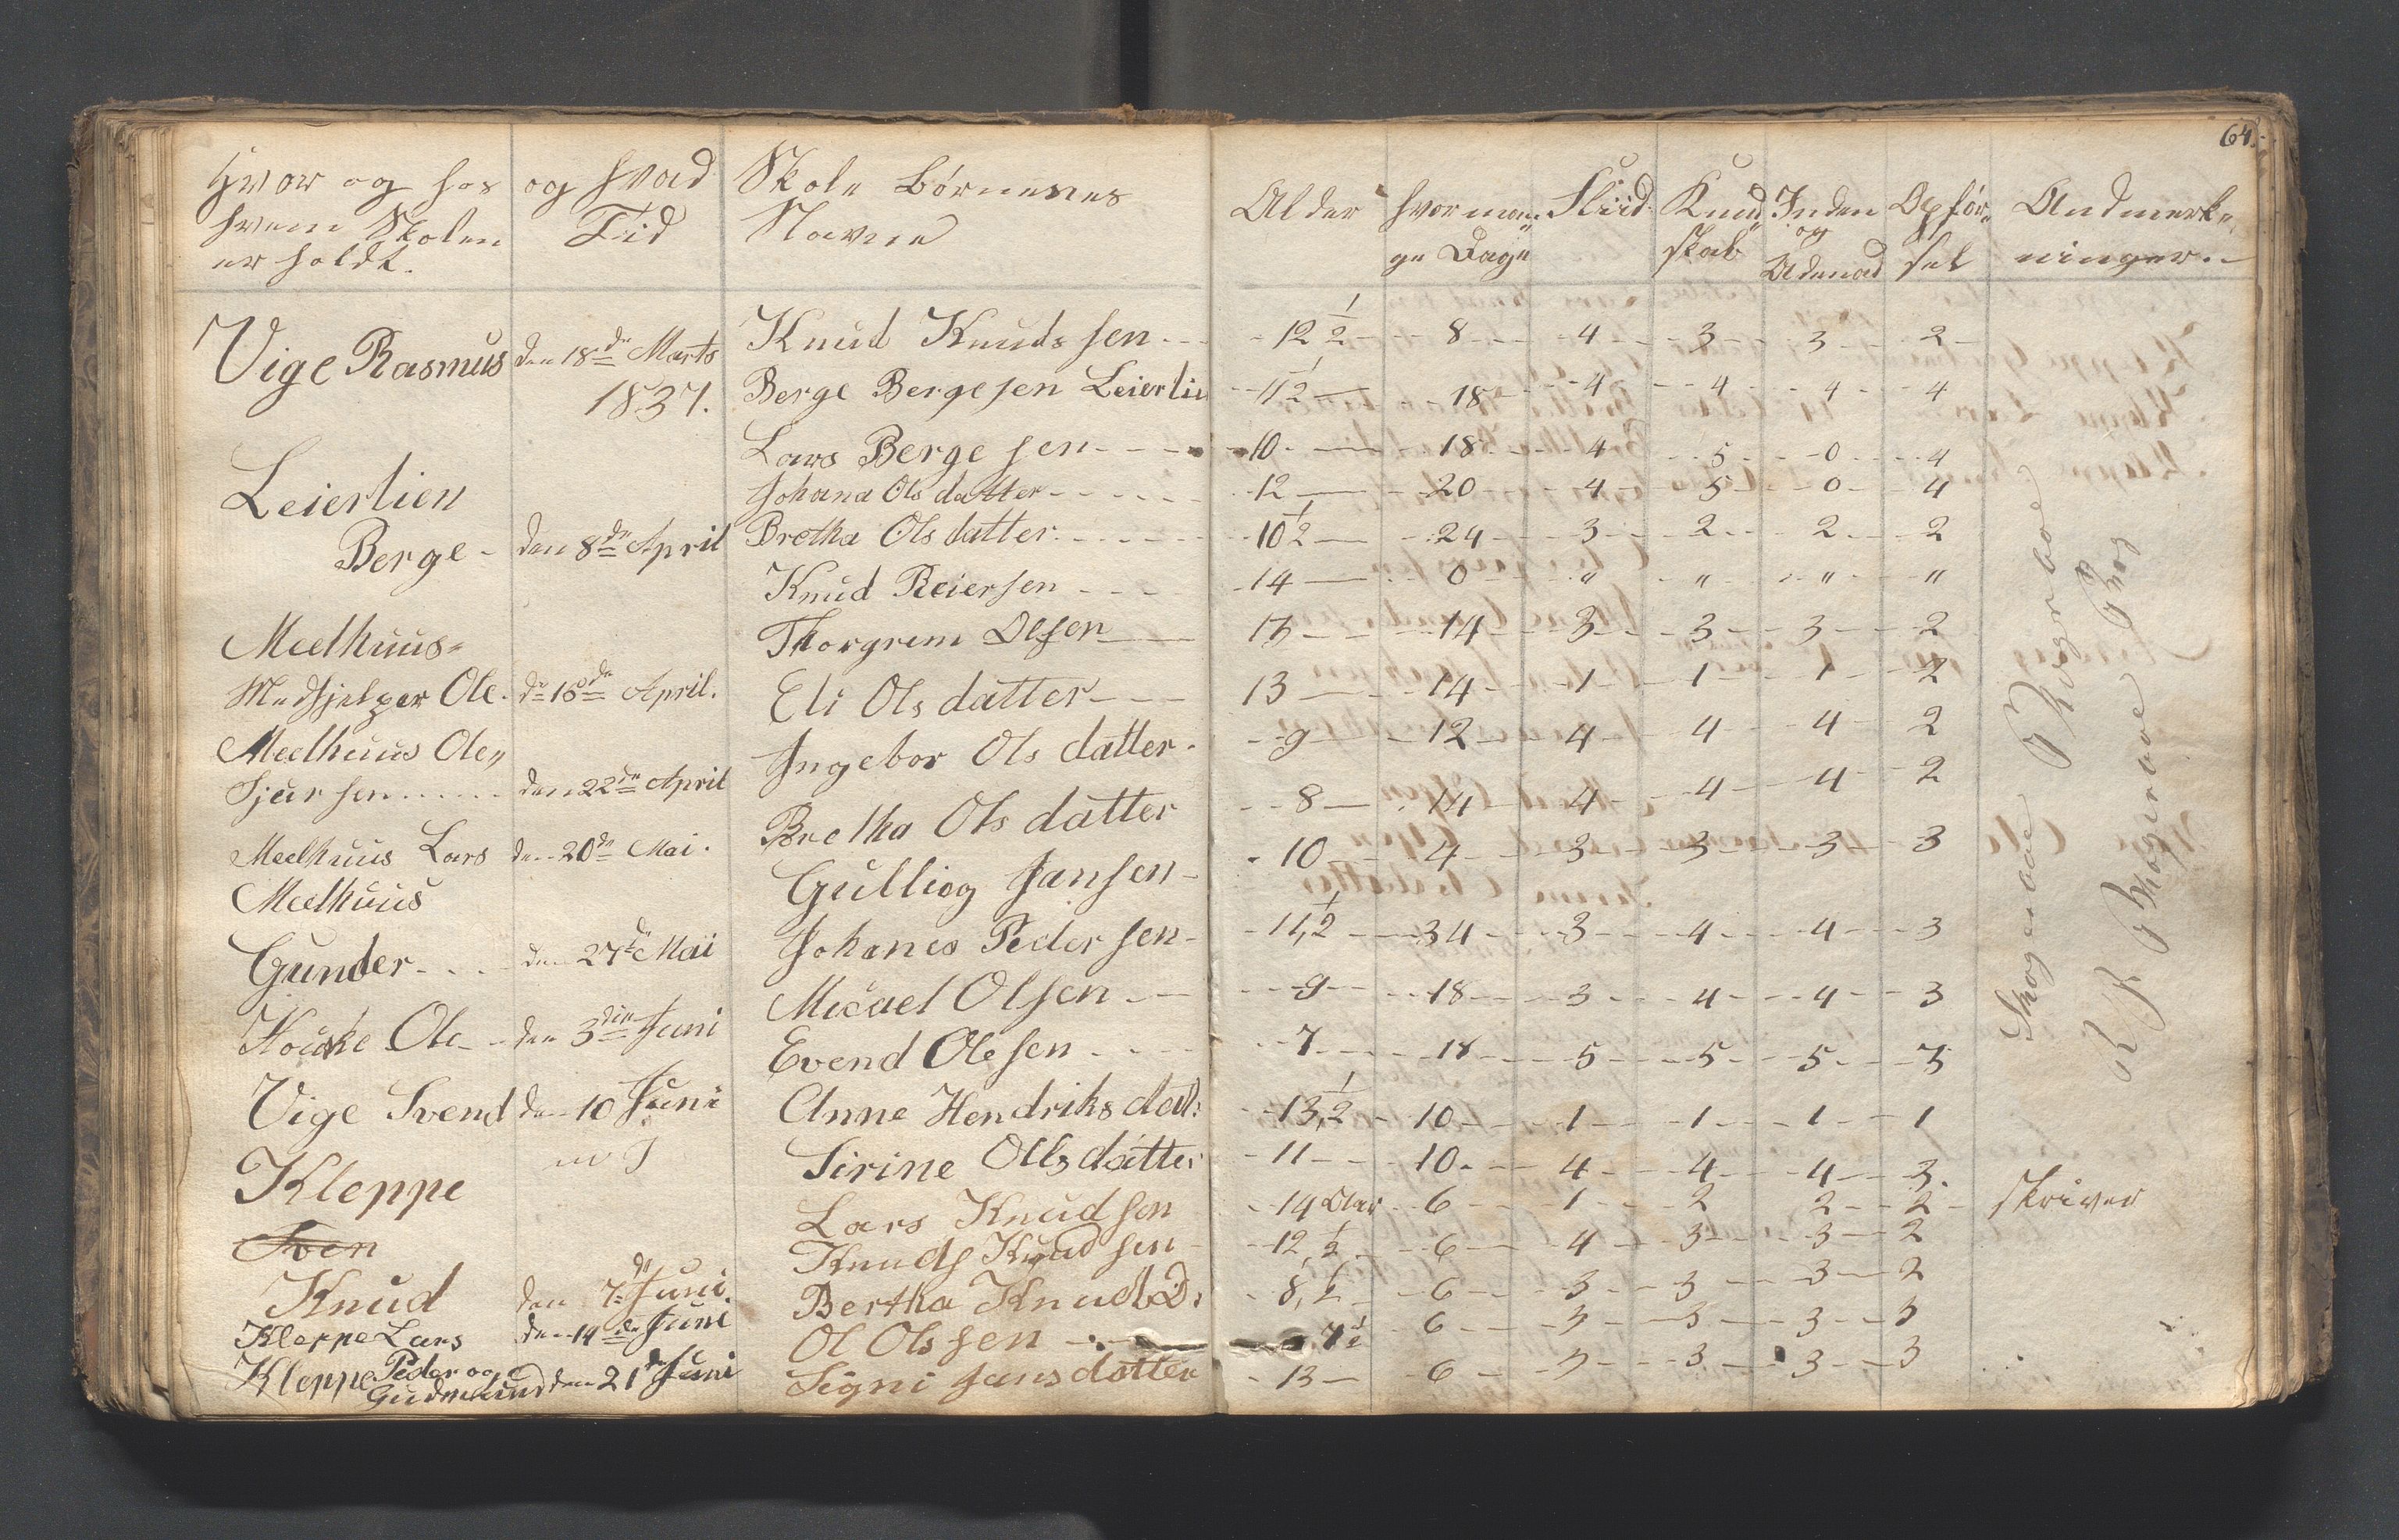 64.
Hvor og hos og hvad Skole Børnenes Alder hvor man- Fliid Kund- Inden Opfør- Andmerke-
hvem Skolen Tid Navne ge Dage skab og sel ninger.
er holdt. Udenad
Vige Rasmus den 18de Marts Knud Knudssen 12 1/2 8 4 3 3 2
1837. Berge Bergesen Leierlien 11 1/2 18 4 4 4 4
Lars Bergesen 10 18 4 5 0 4
Leierlien Johana Olsdatter 12 20 4 5 0 4
Berge den 8de April Bretha Olsdatter 10 1/2 24 3 2 2 2
Knud Reiersen 14 0 " " " "
Meelhuus- Thorgrem Olsen 13 14 3 3 3 2
Medhjelper Ole. d. 18de April. Eli Olsdatter 13 14 1 1 1 2
Meelhuus Ole Ingebor Olsdatter 9 12 4 4 4 2
Sjursen den 22de April Bretha Olsdatter 8 14 4 4 4 2
Meelhuus Lars den 20de Mai. Gulliog Jansen 10 4 3 3 3 3
Meelhuus
Gunder den 27de Mai Johanes Pedersen 11,1/2 34 3 4 4 3
Micael Olsen 9 18 3 4 4 3
Houske Ole den 3die Juni Evend Olesen 7 18 5 5 5 3
Vige Svend den 10 Juni Anne Hendriksdat: 13,1/2 10 1 1 1 1
Kleppe Sirine Olsdatter 11 10 4 4 4 3.
Lars Knudsen 14 Aar 6 1 2 2 2 skriver
Sven Knuds Knudsen 12,1/2 6 4 3 3 2
Knud den 7de Juni. Bertha KnudsD: 8,1/2 6 3 3 3 2
Kleppe Lars den 14de Juni Ol Olssen 6 3 3 3 3
Kleppe Peder og Gudmund den 21de Juni Signi Jansdatter 13 6 3 3 3 3